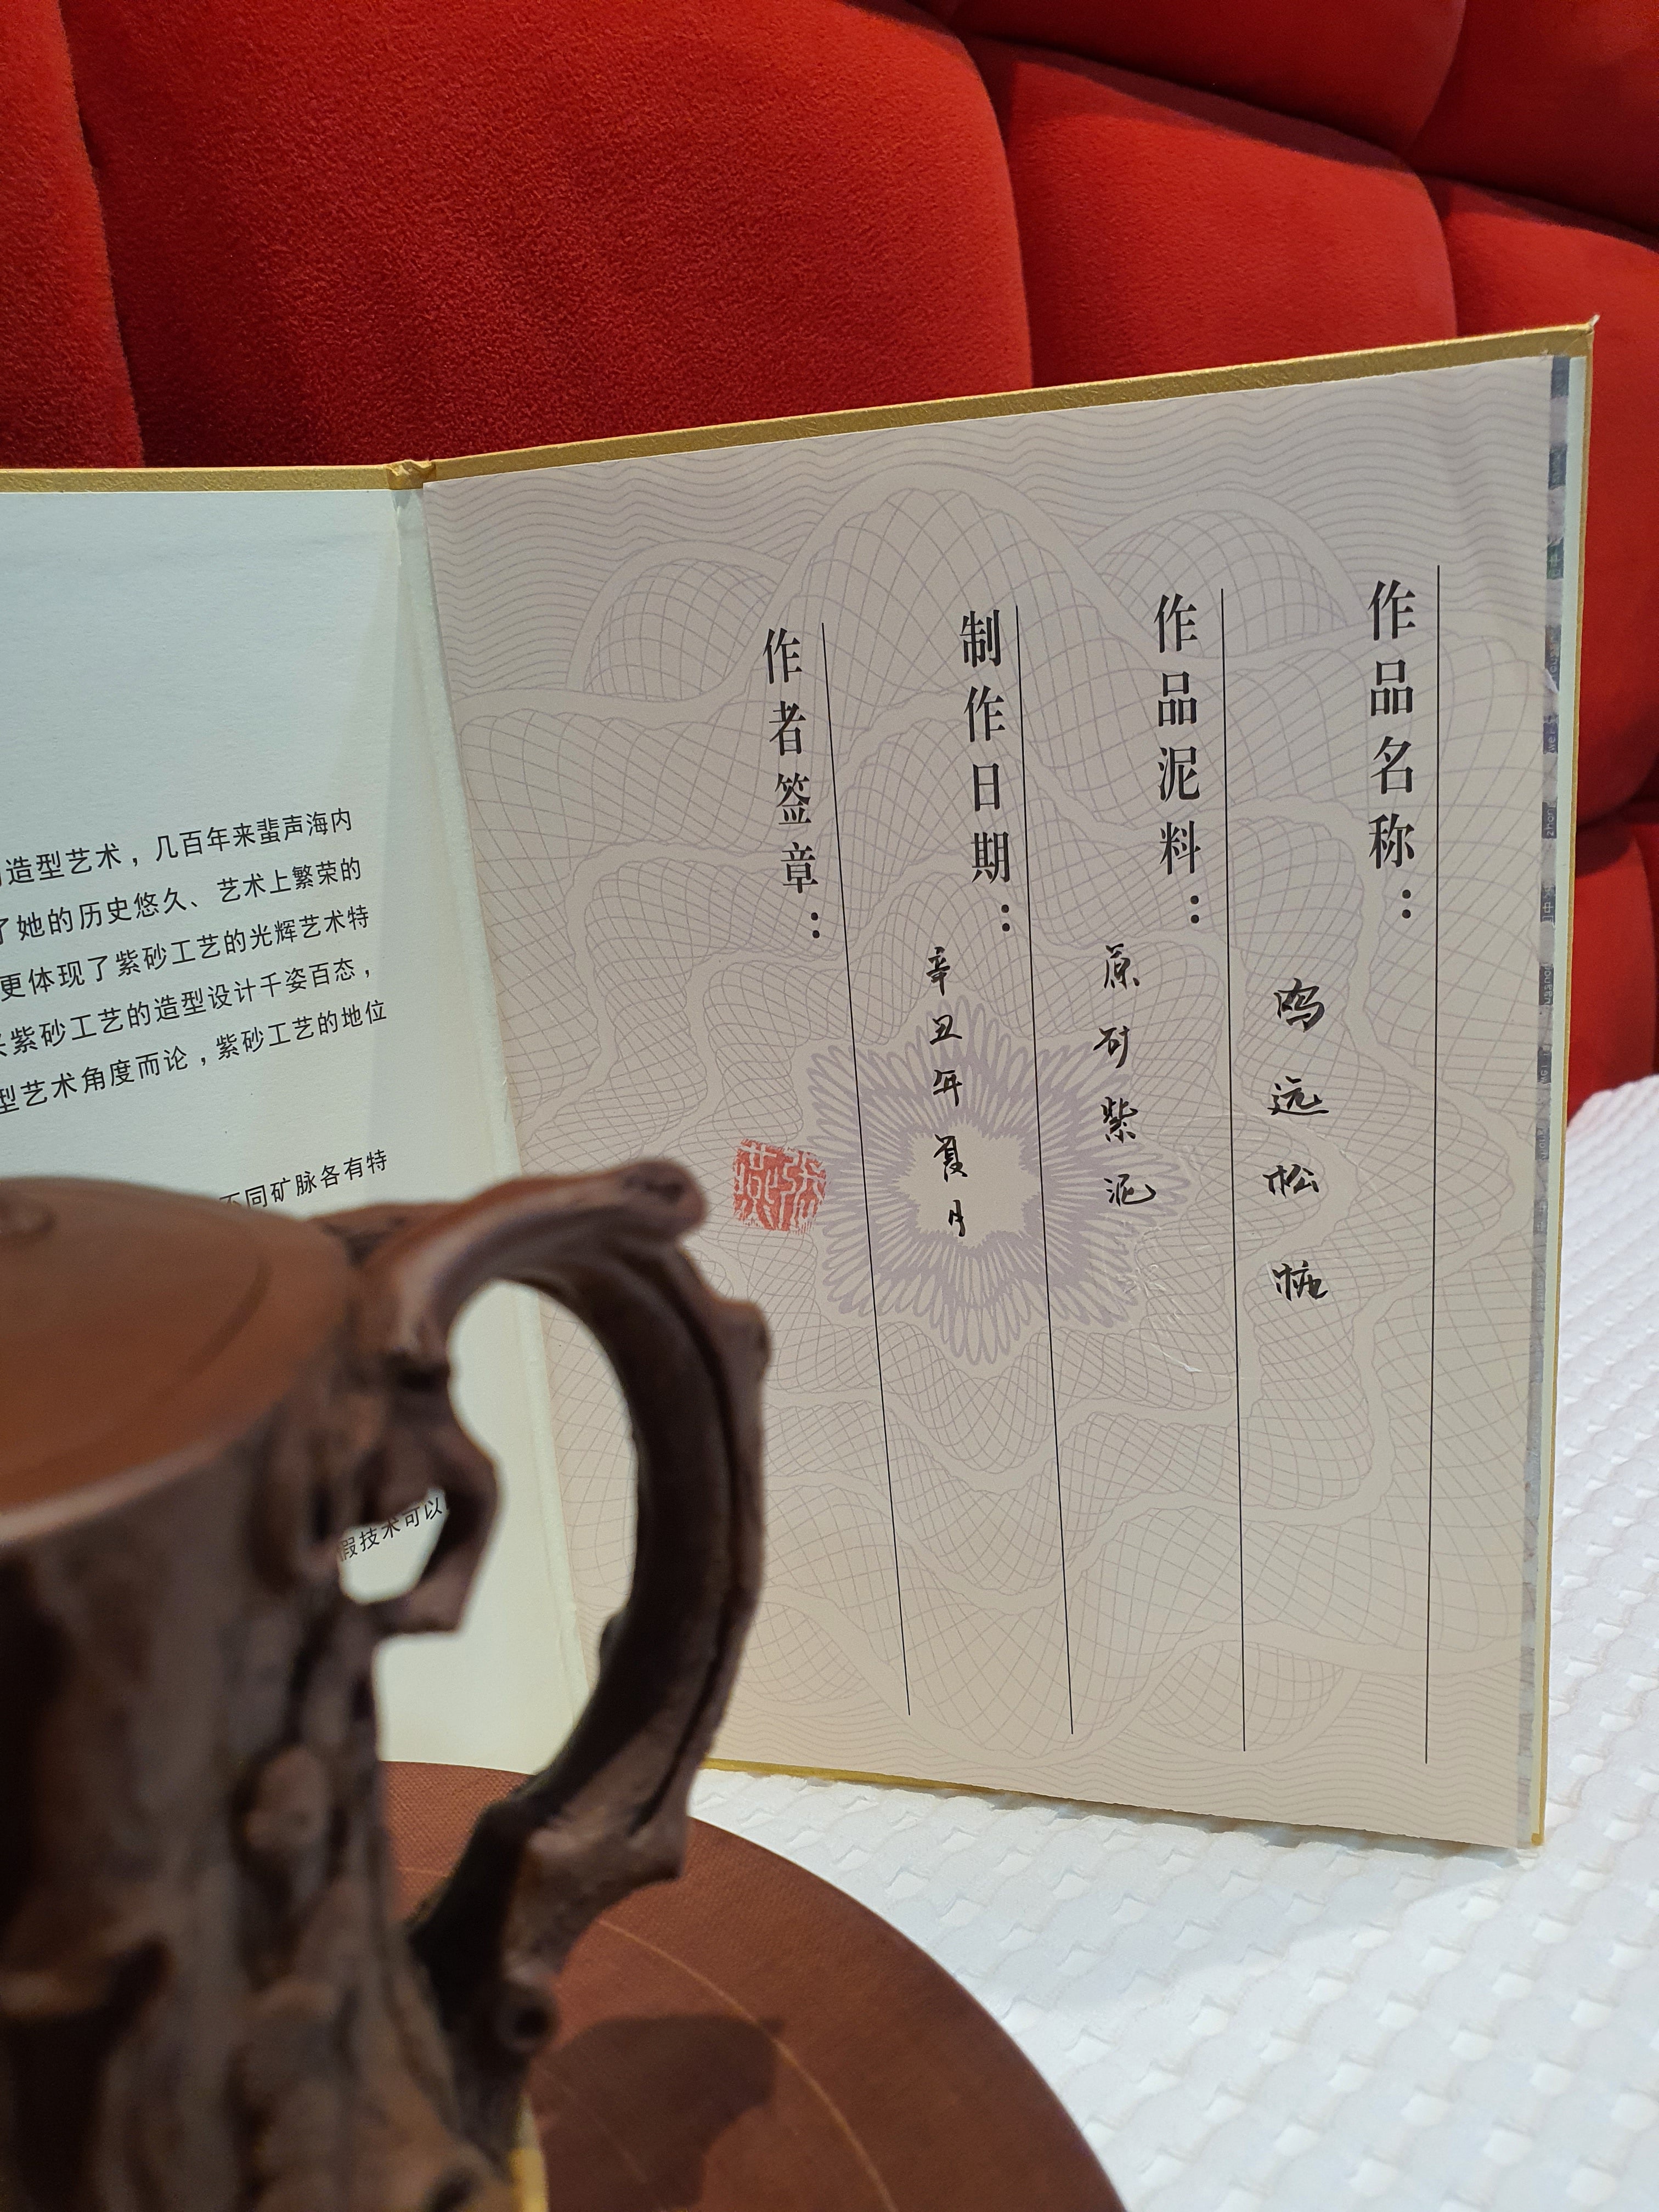 作品名称：鸣远松桩
作品泥料：原矿紫泥
制作日期：辛丑年夏月
作者签章：
造型艺术，几百年来蜚声海内
了她的历史悠久、艺术上繁荣的
更体现了紫砂工艺的光辉艺术特
紫砂工艺的造型设计千姿百态，
型艺术角度而论，紫砂工艺的地位
不同矿脉各有特
假技术可以